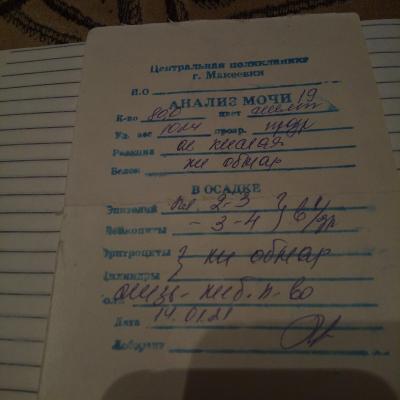 Центральная поликлиника
г. Макеевки
Ф.И.О
АНАЛИЗ МОЧИ 19
К-во 80,0 цвет с/желт
Уд. вес 1014 прозр. прозр
Реакция сл кислая
Белок не обнар
В ОСАДКЕ
Эпителий пл. 2-3 } в п/зр
Лейкоциты - 3-4
Эритроциты } не обнар
Цилиндры
слизь - неб. к-во
Дата 14.01.21
Лаборант